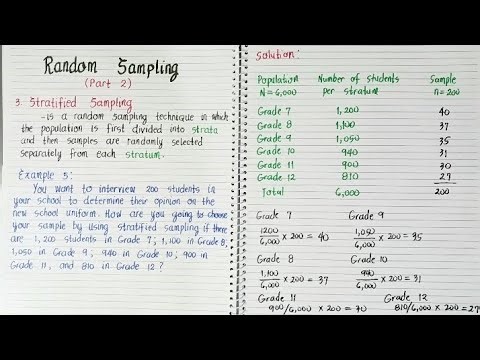 Random Sampling
(Part 2)
3. Stratified Sampling
- is a random sampling technique in which
the population is first divided into strata
and then samples are randomly selected
separately from each stratum.
Example 5:
You want to interview 200 students in
your school to determine their opinion on the
new school uniform. How are you going to choose
your sample by using stratified sampling if there
are 1,200 students in Grade 7; 1,100 in Grade 8;
1,050 in Grade 9; 940 in Grade 10; 900 in
Grade 11, and 810 in Grade 12?
Solution:
Population Number of Students Sample
N=6,000 per stratum n=200
Grade 7 1,200 40
Grade 8 1,100 37
Grade 9 1,050 35
Grade 10 940 31
Grade 11 900 30
Grade 12 810 27
Total 6,000 200
Grade 7 Grade 9
1200/6,000 × 200 = 40 1,050/6,000 × 200 = 35
Grade 8 Grade 10
1,100/6,000 × 200 = 37 940/6,000 × 200 = 31
Grade 11 Grade 12
900/6,000 × 200 = 70 810/6,000 × 200 = 27